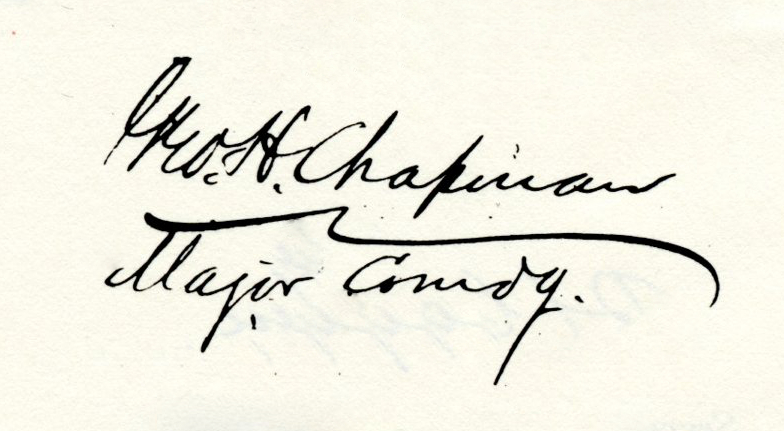 Geo. H. Chapman
Major Comdg.